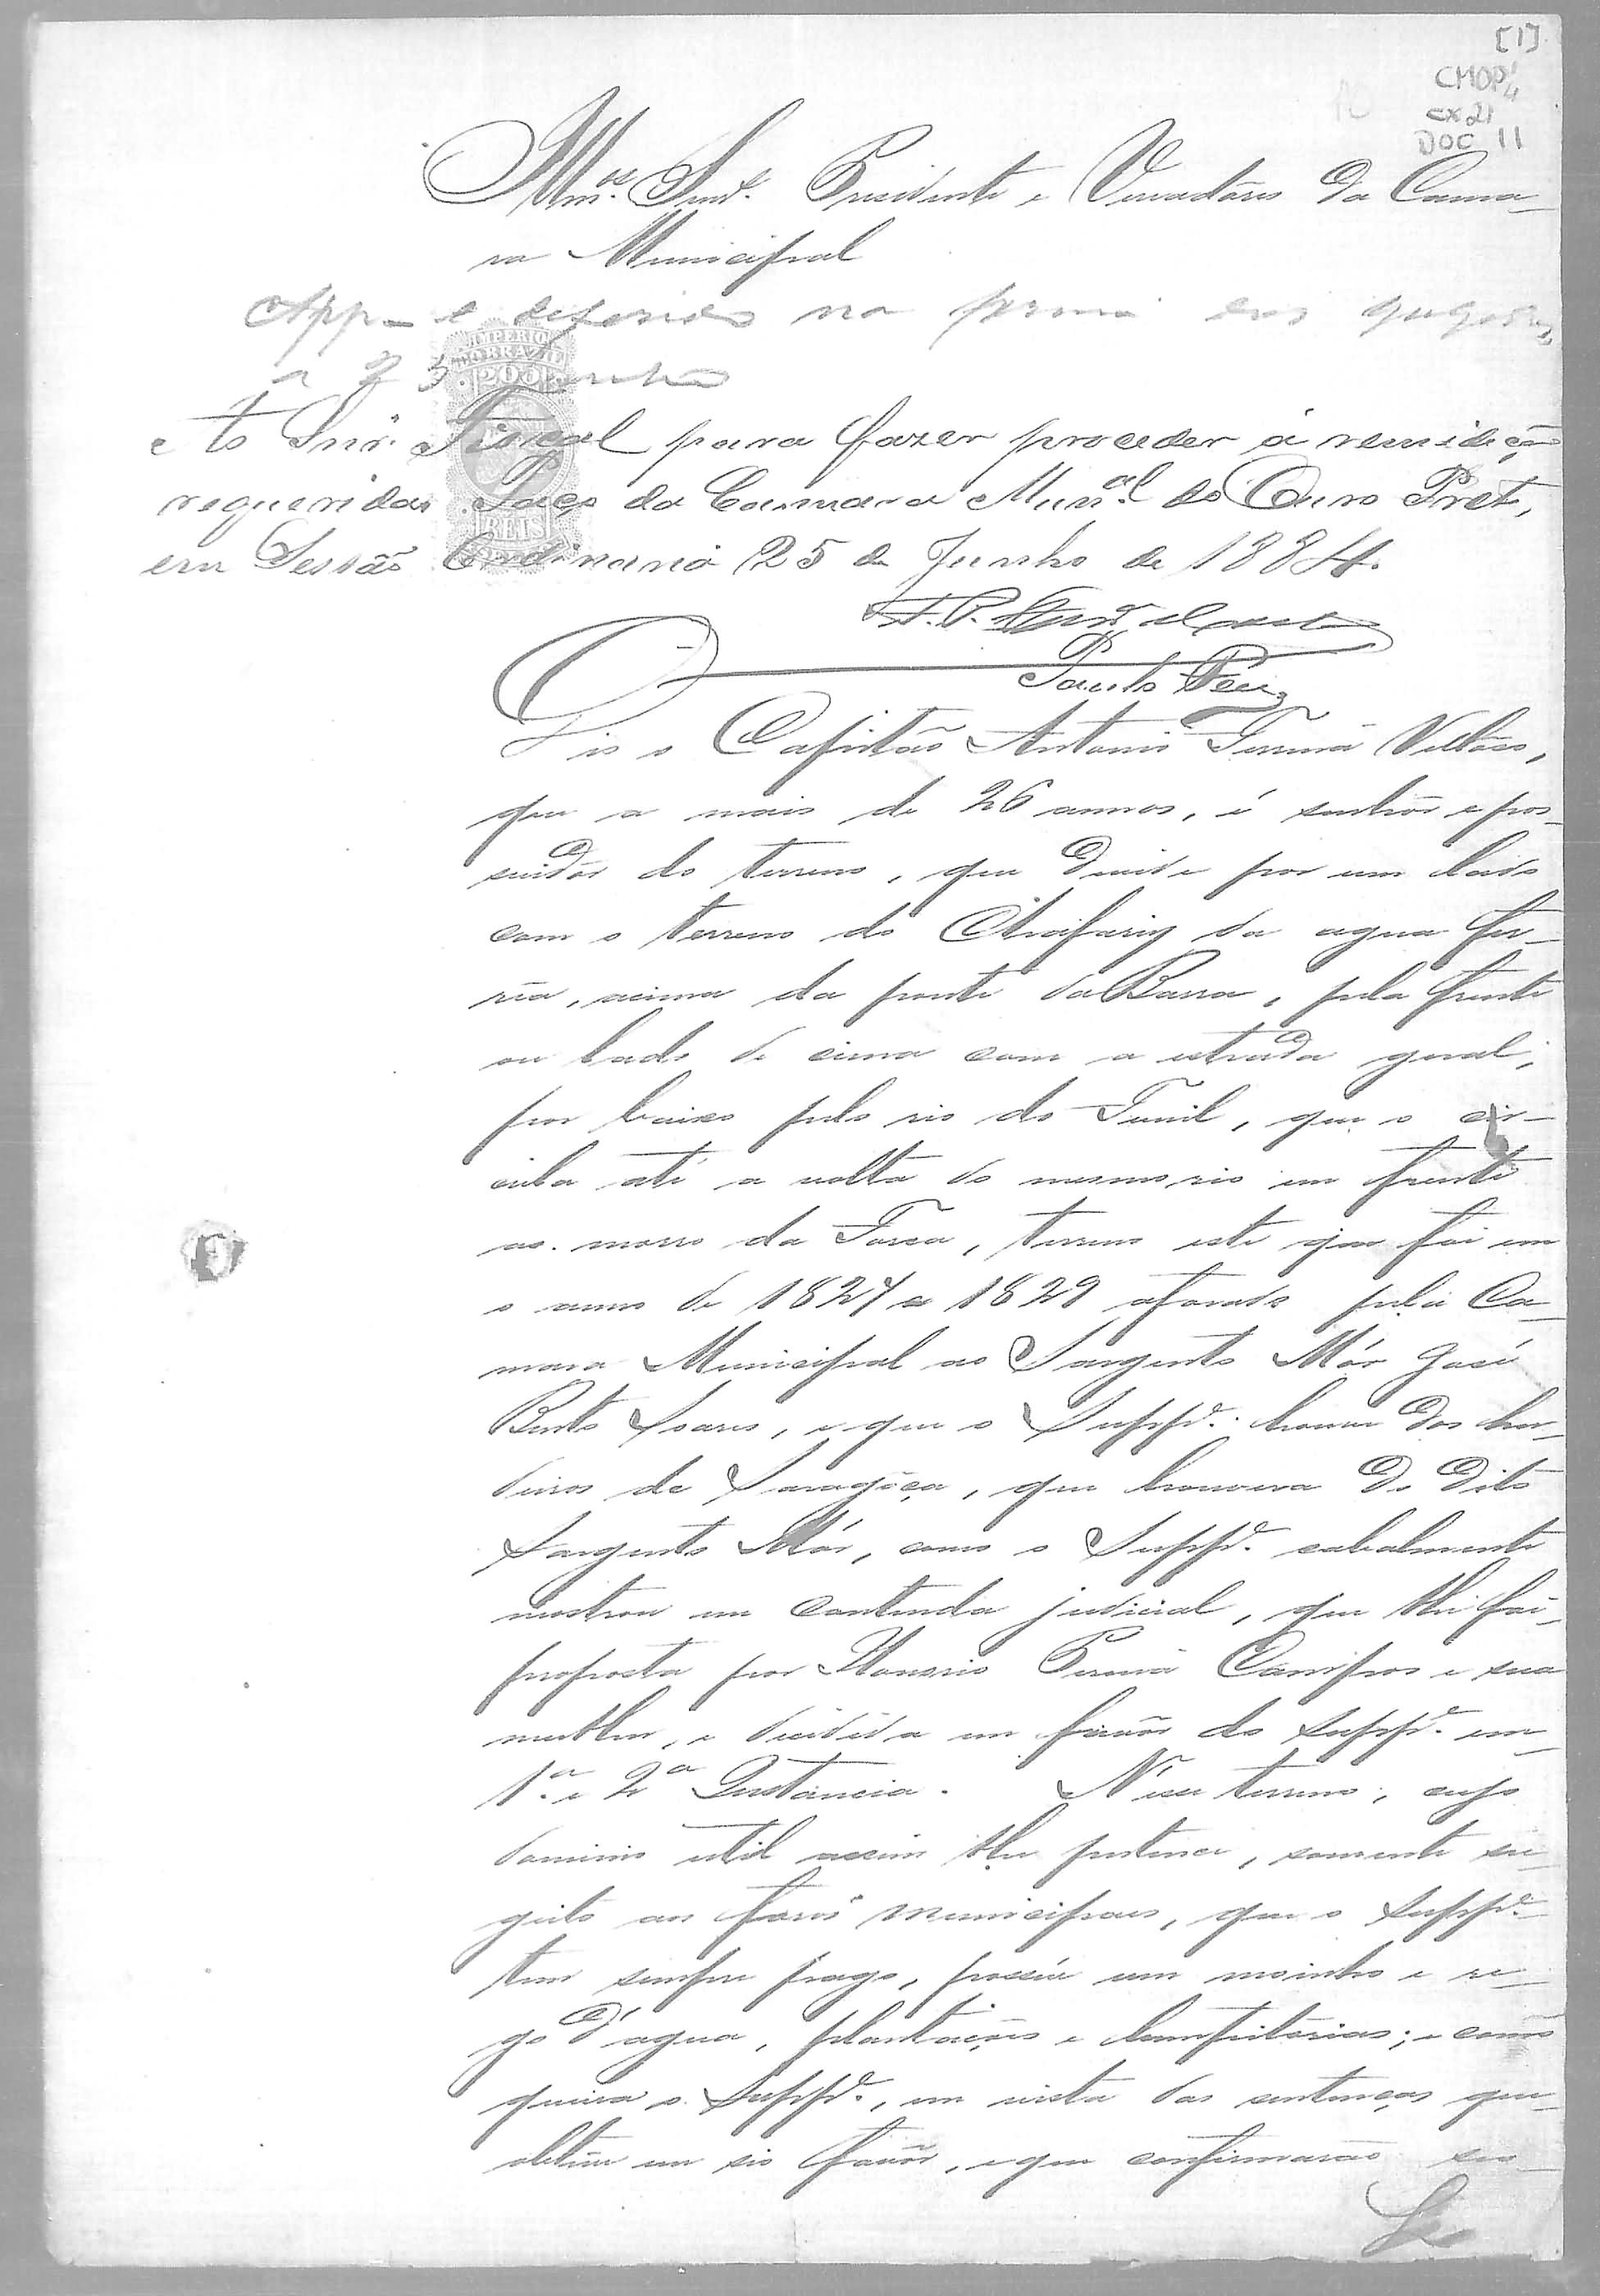 [1]
CMOP
cx 21
DOC 11
Illm.os Snrs. Presidente e Vereadores da Cama-
ra Municipal
App. e deferido na forma
Junho
Ao Snr. Fiscal para fazer proceder á remedição
requerida. Paço da Camara Mun.al do Ouro Preto,
em Sessão Ordinaria 25 de Junho de 1884.
IMPERIO
DO BRAZIL
200
REIS
Diz o Capitão Antonio Ferreira Vellôso,
que a mais de 26 annos, é senhôr e pos-
suidôr do terreno, que devide por um lado
com o terreno do Chafariz da agua fer-
rea, acima da ponte da Barra, pela frente
ou lado de cima com a estrada geral,
por baixo pelo rio do Funil, que o cir-
cula até a volta do mesmo rio em frente
ao morro da Forca, terreno este que foi em
o anno de 1827 a 1829 aforado pela Ca-
mara Municipal ao Sargento Mór José
Bento Soares, e que o Supp.e houve dos her-
deiros de Saragôça, que houvera do dito
Sargento Mór, como o Supp.e cabalmente
mostrou em contenda judicial, que lhe foi
proposta por Honorio Pereira Campos e sua
mulher, e decidida em favôr do Supp.e em
1.a e 2.a Instancia. N'esse terreno, cujo
dominio util assim lhe pertence, somente su-
geito aos fóros municipaes, que o Supp.e
tem sempre pago, possúe um moinho e re-
go d'agua, plantações e bemfeitorias; e como
queira o Supp.e, em vista das sentenças que
obteve em sio favôr, e que confirmarão seo